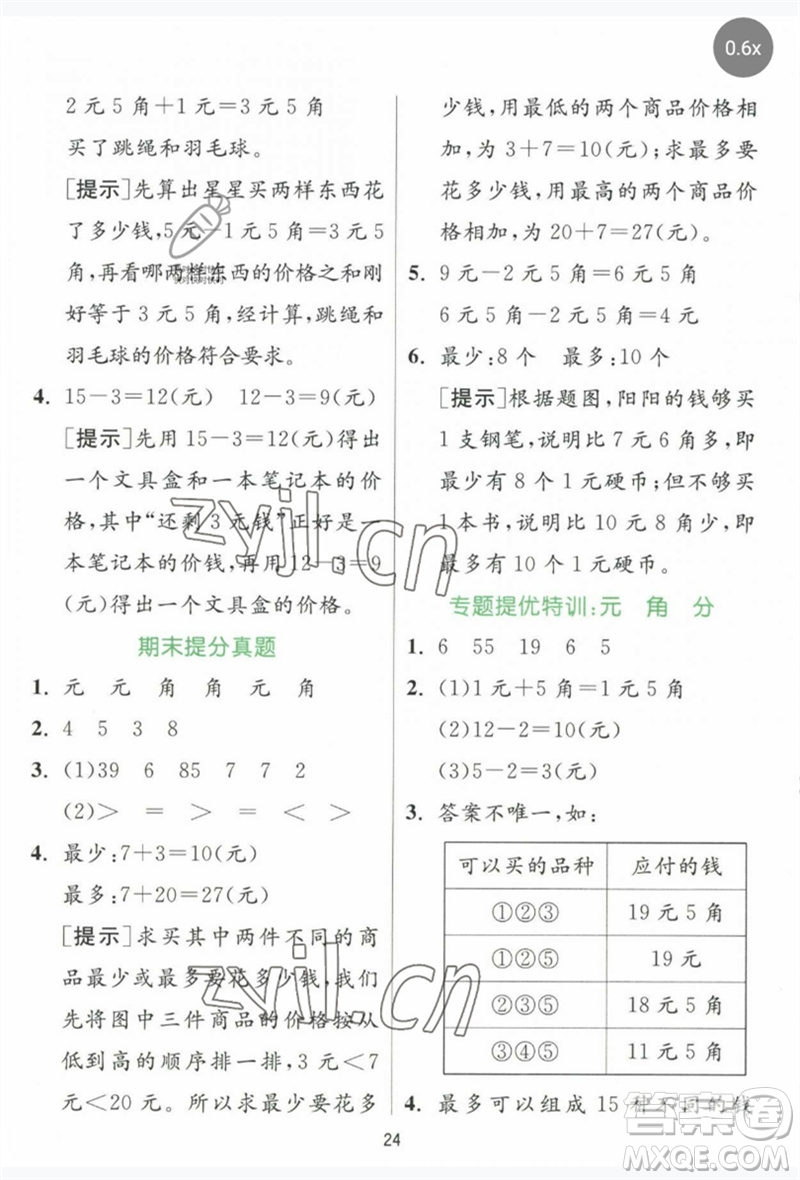 0.6x
2元5角+1元=3元5角
买了跳绳和羽毛球。
[提示]先算出星星买两样东西花
了多少钱,5元-1元5角=3元5
角,再看哪两样东西的价格之和刚
好等于3元5角,经计算,跳绳和
羽毛球的价格符合要求。
4. 15-3=12(元) 12-3=9(元)
[提示]先用15-3=12(元)得出
一个文具盒和一本笔记本的价
格,其中“还剩3元钱”正好是一
本笔记本的价钱,再用12-3=9
(元)得出一个文具盒的价格。
期末提分真题
1. 元 元 角 角 元 角
2. 4 5 3 8
3. (1)39 6 85 7 7 2
(2)> = > = < >
4. 最少:7+3=10(元)
最多:7+20=27(元)
[提示]求买其中两件不同的商
品最少或最多要花多少钱,我们
先将图中三件商品的价格按从
低到高的顺序排一排,3元<7
元<20元。所以求最少要花多
少钱,用最低的两个商品价格相
加,为3+7=10(元);求最多要
花多少钱,用最高的两个商品价
格相加,为20+7=27(元)。
5. 9元-2元5角=6元5角
6元5角-2元5角=4元
6. 最少:8个 最多:10个
[提示]根据题图,阳阳的钱够买
1支钢笔,说明比7元6角多,即
最少有8个1元硬币;但不够买
1本书,说明比10元8角少,即
最多有10个1元硬币。
专题提优特训:元 角 分
1. 6 55 19 6 5
2. (1)1元+5角=1元5角
(2)12-2=10(元)
(3)5-2=3(元)
3. 答案不唯一,如:
可以买的品种 应付的钱
①②③ 19元5角
①②⑤ 19元
②③⑤ 18元5角
③④⑤ 11元5角
4. 最多可以组成15种不同的钱
24
zyjl.cn
zyjl.cn
答案圈
MXQE.COM